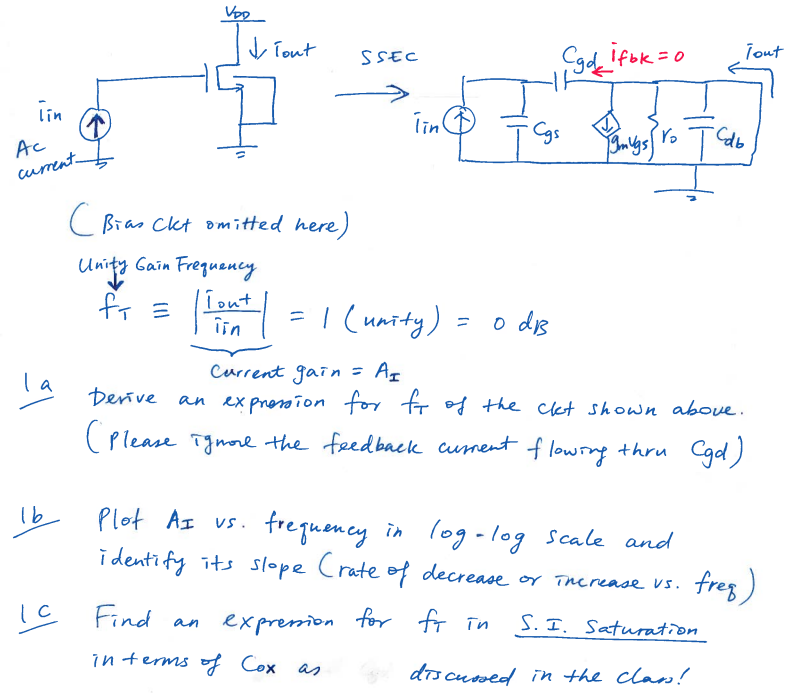 VDD
iout
SSEC
Cgd ifbk = 0
iout
iin
AC
current
iin
Cgs
gmvgs
ro
Cdb
( Bias ckt omitted here )
Unity Gain Frequency
fT ≡ | iout / iin | = 1 ( unity ) = 0 dB
Current gain = AI
1a Derive an expression for fT of the ckt shown above.
( Please ignore the feedback current flowing thru Cgd )
1b Plot AI vs. frequency in log-log scale and
identify its slope ( rate of decrease or increase vs. freq )
1c Find an expression for fT in S.I. Saturation
in terms of Cox as discussed in the class!